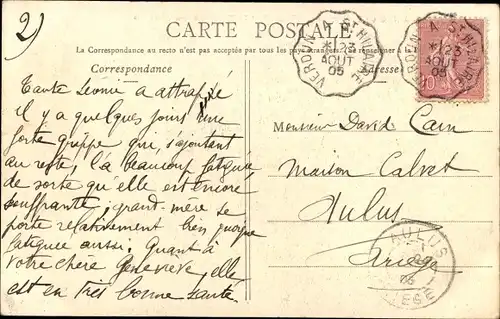 2)
CARTE POSTALE
La Correspondance au recto n'est pas acceptée par tous les pays étrangers. Se renseigner
Correspondance
Adresse
VERDUN A St HILAIRE
23
AOUT
05
VERDUN A St HILAIRE
23
AOUT
05
10
Tante Léonie a attrapé
il y a quelques jours une
forte grippe qui, s'ajoutant
au reste, l'a beaucoup fatiguée
de sorte qu'elle est encore
souffrante; grand-mère se
porte relativement bien quoique
fatiguée aussi. Quant à
votre chère Geneviève, elle
est en très bonne santé
Monsieur David Cain
Maison Calvet
Aulus
Ariège
AULUS
05